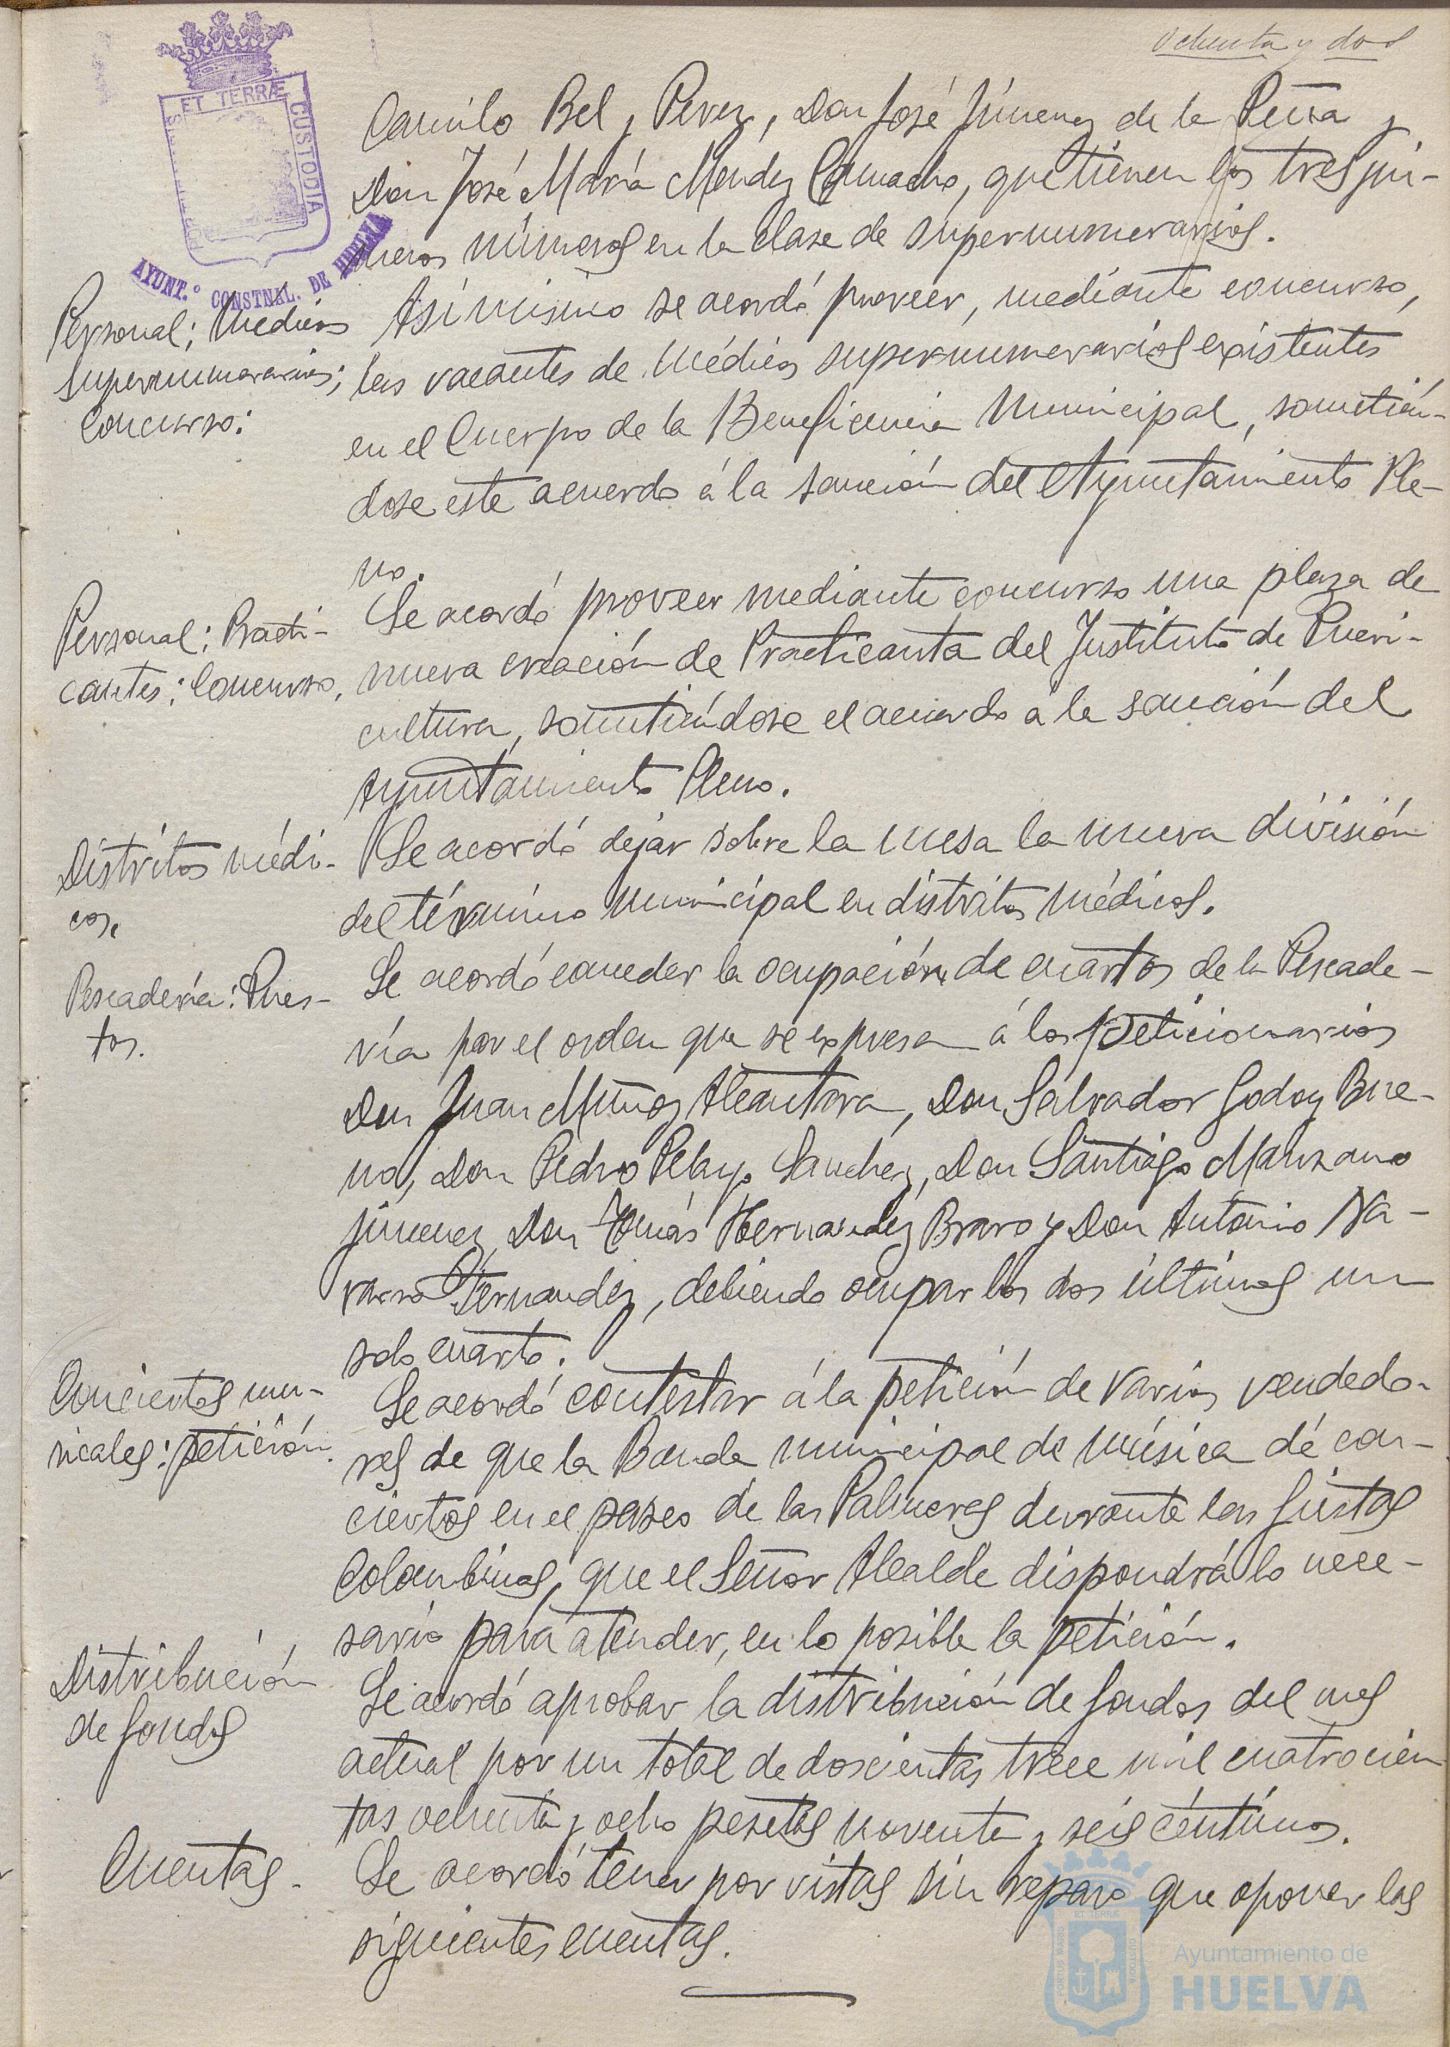 Ochenta y dos
ET TERRÆ CUSTODIA
AYUNT.º CONSTNAL. DE HUELVA
Camilo Bel y Perez, Don José Jimenez de la Peña y
Don José María Mendez Camacho, que tienen los tres pri-
meros números en la clase de supernumerarios.
Personal: Medicos
supernumerarios:
Concurso:
Asimismo se acordó proveer, mediante concurso,
las vacantes de médicos supernumerarios existentes
en el Cuerpo de la Beneficencia Municipal, sometién-
dose este acuerdo á la sanción del Ayuntamiento Ple-
no.
Personal: Practi-
cantes: Concurso.
Se acordó proveer mediante concurso una plaza de
nueva creación de Practicanta del Instituto de Pueri-
cultura, sometiéndose el acuerdo á la sanción del
Ayuntamiento Pleno.
Distritos médi-
cos.
Se acordó dejar sobre la mesa la nueva división
del término municipal en distritos médicos.
Pescadería: Pues-
tos.
Se acordó conceder la ocupación de cuartos de la Pescade-
ría por el orden que se expresa á los peticionarios
Don Juan Muñoz Alcantara, Don Salvador Godoy Bue-
no, Don Pedro Pelayo Sanchez, Don Santiago Manzano
Jimenez, Don Tomás Hernandez Bravo y Don Antonio Na-
varro Fernandez, debiendo ocupar los dos últimos un
solo cuarto.
Conciertos mu-
sicales: petición.
Se acordó contestar á la petición de varios vendedo-
res de que la Banda municipal de música dé con-
ciertos en el paseo de las Palmeras durante las fiestas
Colombinas, que el Señor Alcalde dispondrá lo nece-
sario para atender, en lo posible la petición.
Distribución
de fondos
Se acordó aprobar la distribución de fondos del mes
actual por un total de doscientas trece mil cuatrocien
tas ochenta y ocho pesetas noventa y seis céntimos.
Cuentas.
Se acordó tener por vistas sin reparo que oponer las
siguientes cuentas.
Ayuntamiento de
HUELVA